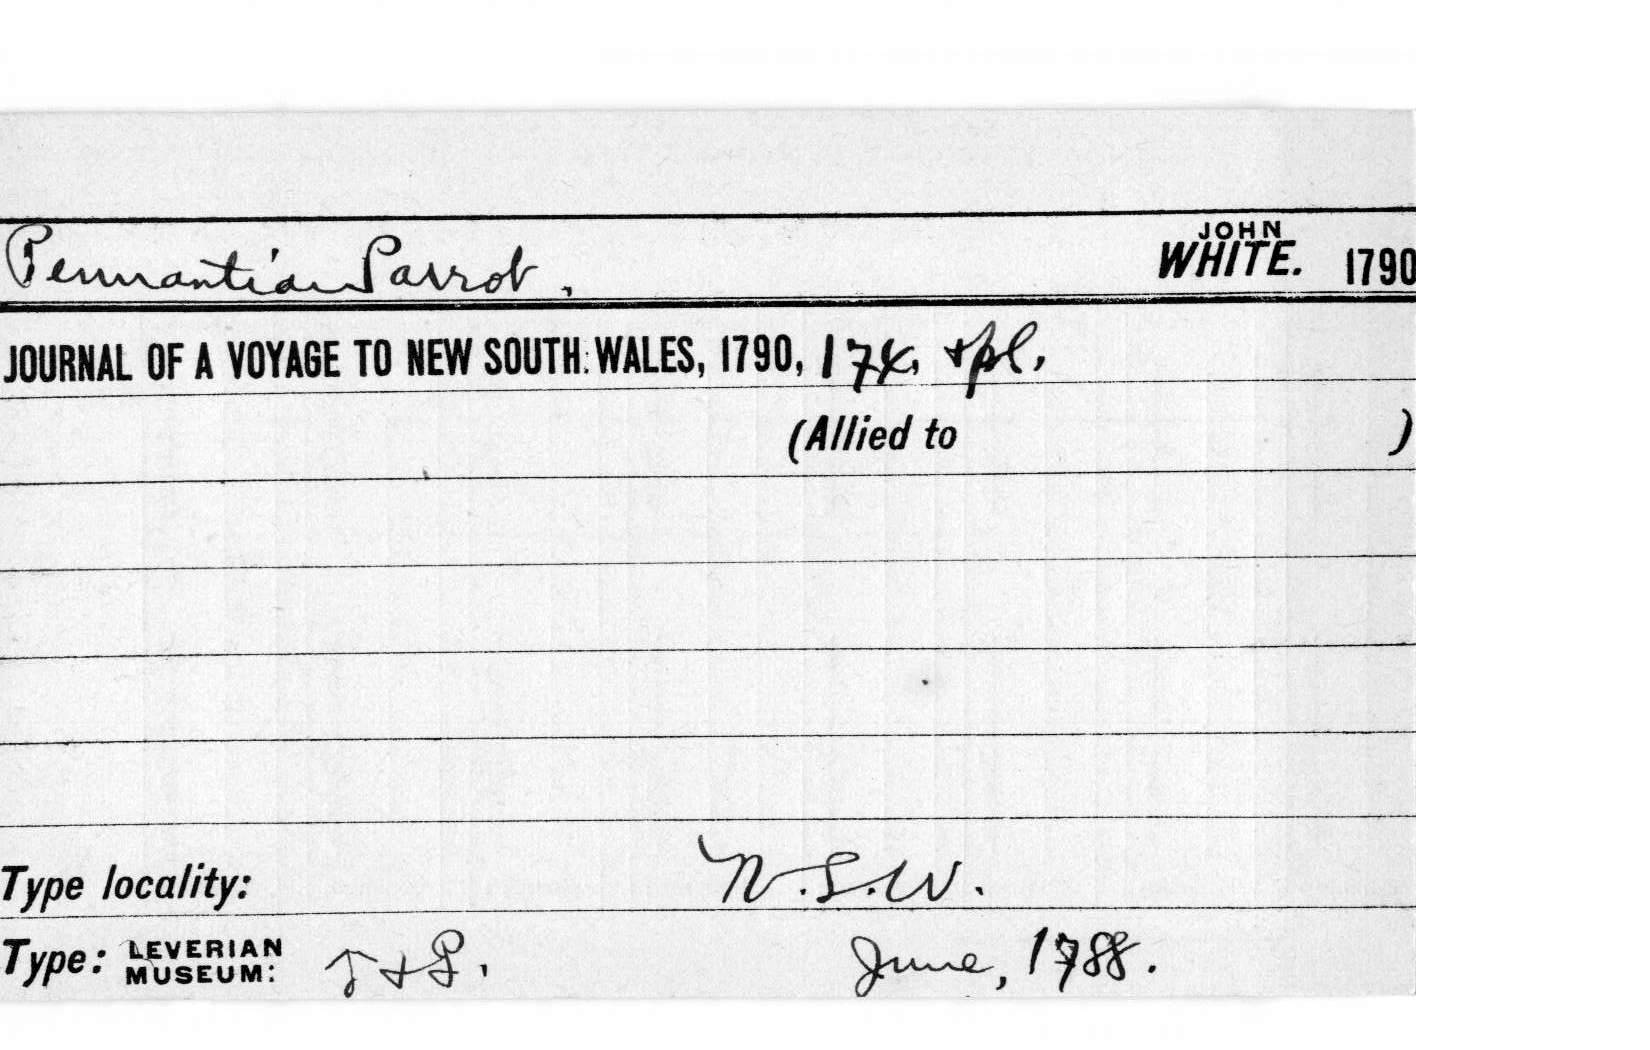 Pennantian Parrot.
JOHN
WHITE. 1790
JOURNAL OF A VOYAGE TO NEW SOUTH WALES, 1790, 174, & pl.
(Allied to )
Type locality: N.S.W.
Type: LEVERIAN MUSEUM: ♂ + ♀. June, 1788.